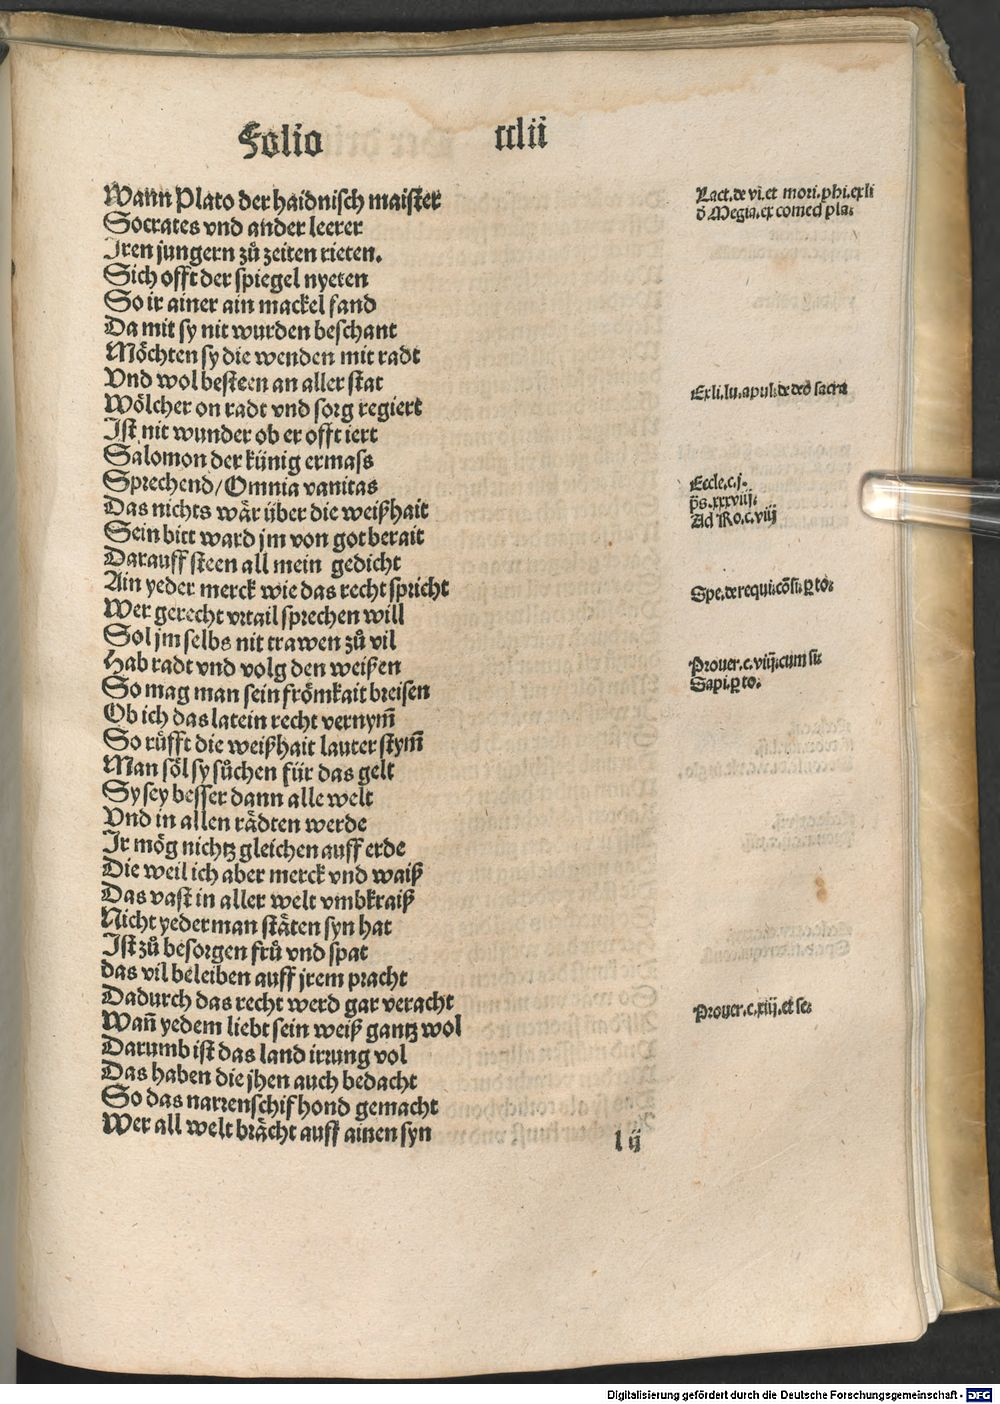 Folio cclii
Wann Plato der haidnisch maister
Socrates vnd ander leerer
Iren jungern zů zeiten rieten.
Sich offt der spiegel nyeten
So ir ainer ain mackel fand
Da mit sy nit wurden beschant
Möchten sy die wenden mit radt
Vnd wol besteen an aller stat
Wölcher on radt vnd sorg regiert
Ist nit wunder ob er offt iert
Salomon der künig ermass
Sprechend/Omnia vanitas
Das nichts wär über die weißhait
Sein bitt ward jm von got berait
Darauff steen all mein gedicht
Ain yeder merck wie das recht spricht
Wer gerecht vrtail sprechen will
Sol jm selbs nit trawen zů vil
Hab radt vnd volg den weißen
So mag man sein frömkait breisen
Ob ich das latein recht vernym̄
So růfft die weißhait lauter stym̄
Man söl sy sůchen für das gelt
Sy sey besser dann alle welt
Vnd in allen rädten werde
Ir mög nichtz gleichen auff erde
Die weil ich aber merck vnd waiß
Das vast in aller welt vmbkraiß
Nicht yederman stäten syn hat
Ist zů besorgen frů vnd spat
das vil beleiben auff jrem pracht
Dadurch das recht werd gar veracht
Wañ yedem liebt sein weiß gantz wol
Darumb ist das land irrung vol
Das haben die jhen auch bedacht
So das narrenschif hond gemacht
Wer all welt brächt auff ainen syn
l ij
Lact. de vi. et mori. phi. ex li
d̄ Megia. ex comed pla.
Ex li. lu. apul. de deo sacra
Eccle. c. j.
p̄s. xxxviij.
Ad Ro. c. viij
Spe. de requi. cōsi. ꝑ to.
Prouer. c. viij. cum si.
Sapi. ꝑ to.
Prouer. c. xiij. et se.
Digitalisierung gefördert durch die Deutsche Forschungsgemeinschaft - DFG